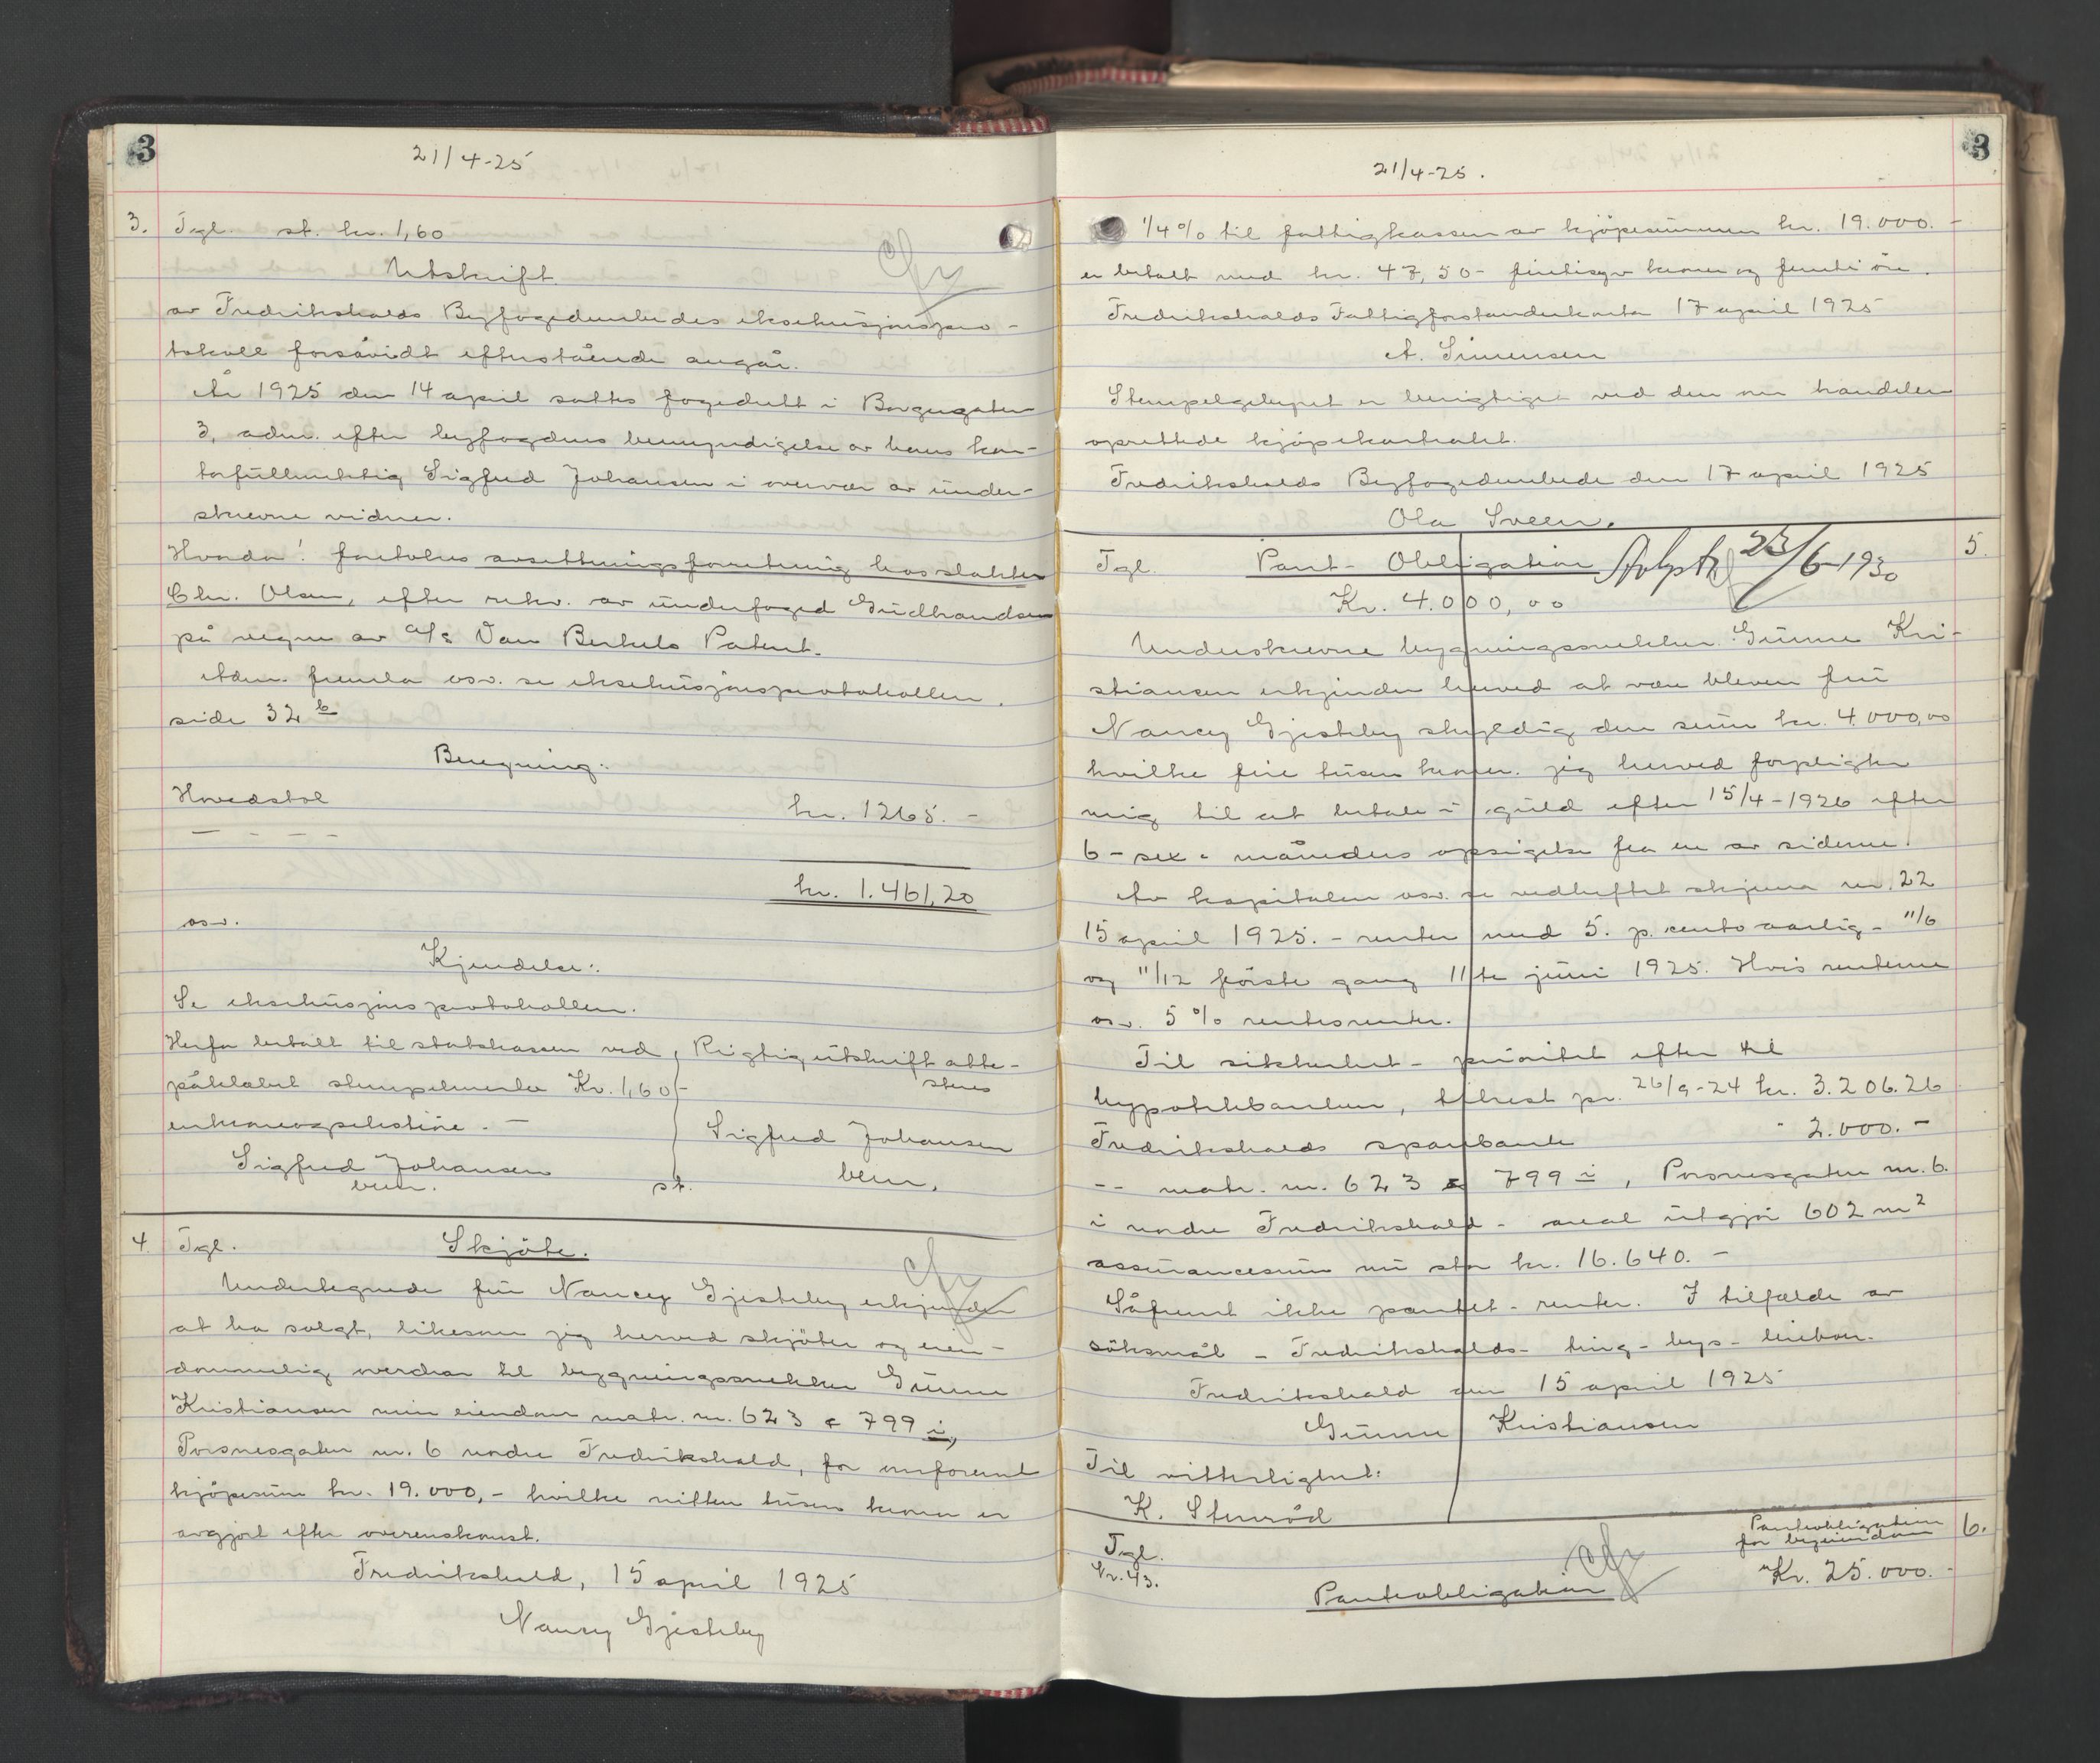 3
21/4-25
3. Tgl. st. kr. 1,60
Utskrift
av Fredrikshalds Byfogedembedes eksekusjonspro-
tokoll forsåvidt efterstående angår.
År 1925 den 14 april sattes fogedrett i Borgergaten
3, adm. efter byfogdens bemyndigelse av hans kon-
torfullmektig Sigfred Johansen i overvær av under-
skrevne vidner.
Hvorda! foretokes avsettningsforretning hos slakter
Chr. Olsen, efter rekv. av underfoged Gudbrandsen
på vegne av A/S Van Berkels Patent.
Adm. fremla osv. se eksekusjonsprotokollen.
side 32 b
Beregning:
Hovedstol kr. 1265.-
- - - -
kr. 1.461,20
osv.
Kjendelse:
Se eksekusjonsprotokollen.
Herfor betalt til statskassen ved
påklabet stempelmerke Kr. 1,60-
enkroneogsekstiøre.-
Sigfred Johansen
bem.
st.
Rigtig utskrift atte-
steres
Sigfred Johansen
bem.
4. Tgl. Skjöte.
Undertegnede fru Nancy Gjesteby erkjender
at ha solgt, likesom jeg herved skjöter og eien-
dommelig overdrar til bygningssnekker Gunne
Kristiansen min eiendom matr. nr. 623 & 799 i,
Porsnesgaten nr. 6 nordre Fredrikshald, for omforenet
kjöpesum kr. 19.000,- hvilke nitten tusen kroner er
avgjort efter overenskomst.
Fredrikshald, 15 april 1925
Nancy Gjesteby
3
21/4-25.
1/4 % til fattigkassen av kjöpesummen kr. 19.000.-
er betalt med kr. 47,50- firtisyv kroner og femti öre.
Fredrikshalds Fattigforstanderkontor 17 april 1925
A. Simensen
Stempelgebyret er berigtiget ved den om handelen
oprettede kjöpekontrakt.
Fredrikshalds Byfogedembede den 17 april 1925
Ola Sveen.
5.
Tgl. Pant-Obligation Avlyst 23/6-1930
Kr. 4.000,00
Underskrevne bygningssnekker Gunne Kri-
stiansen erkjender herved at være bleven fru
Nancy Gjesteby skyldig den sum kr. 4.000,00
hvilke fire tusen kroner. jeg herved forpligter
mig til at betale i guld efter 15/4-1926 efter
6-sex- måneders opsigelse fra en av siderne.
Av kapitalen osv. se vedheftet skjema nr. 22
15 april 1925.- renter med 5. p. cento aarlig- 11/6
og 11/12 förste gang 11te juni 1925. Hvis renterne
osv. 5 % rentesrenter.
Til sikkerhet- prioritet efter til
hypotekbanken, tilrest pr. 26/9-24 kr. 3.206.26
Fredrikshalds sparebank " 2.000.-
-- matr. nr. 623 & 799 i, Porsnesgaten nr. 6.
i nordre Fredrikshald- areal utgjör 602 m2
assurancesum nu stor kr. 16.640.-
Såfremt ikke pantet- renter. I tilfælde av
söksmål - Fredrikshalds- ting- bys-
Fredrikshald den 15 april 1925
Gunne Kristiansen
Til vitterlighet:
K. Stenröd
6.
Tgl.
Nr. 43.
Pantobligation
Panteobligation
for byeiendom
Kr. 25.000.-